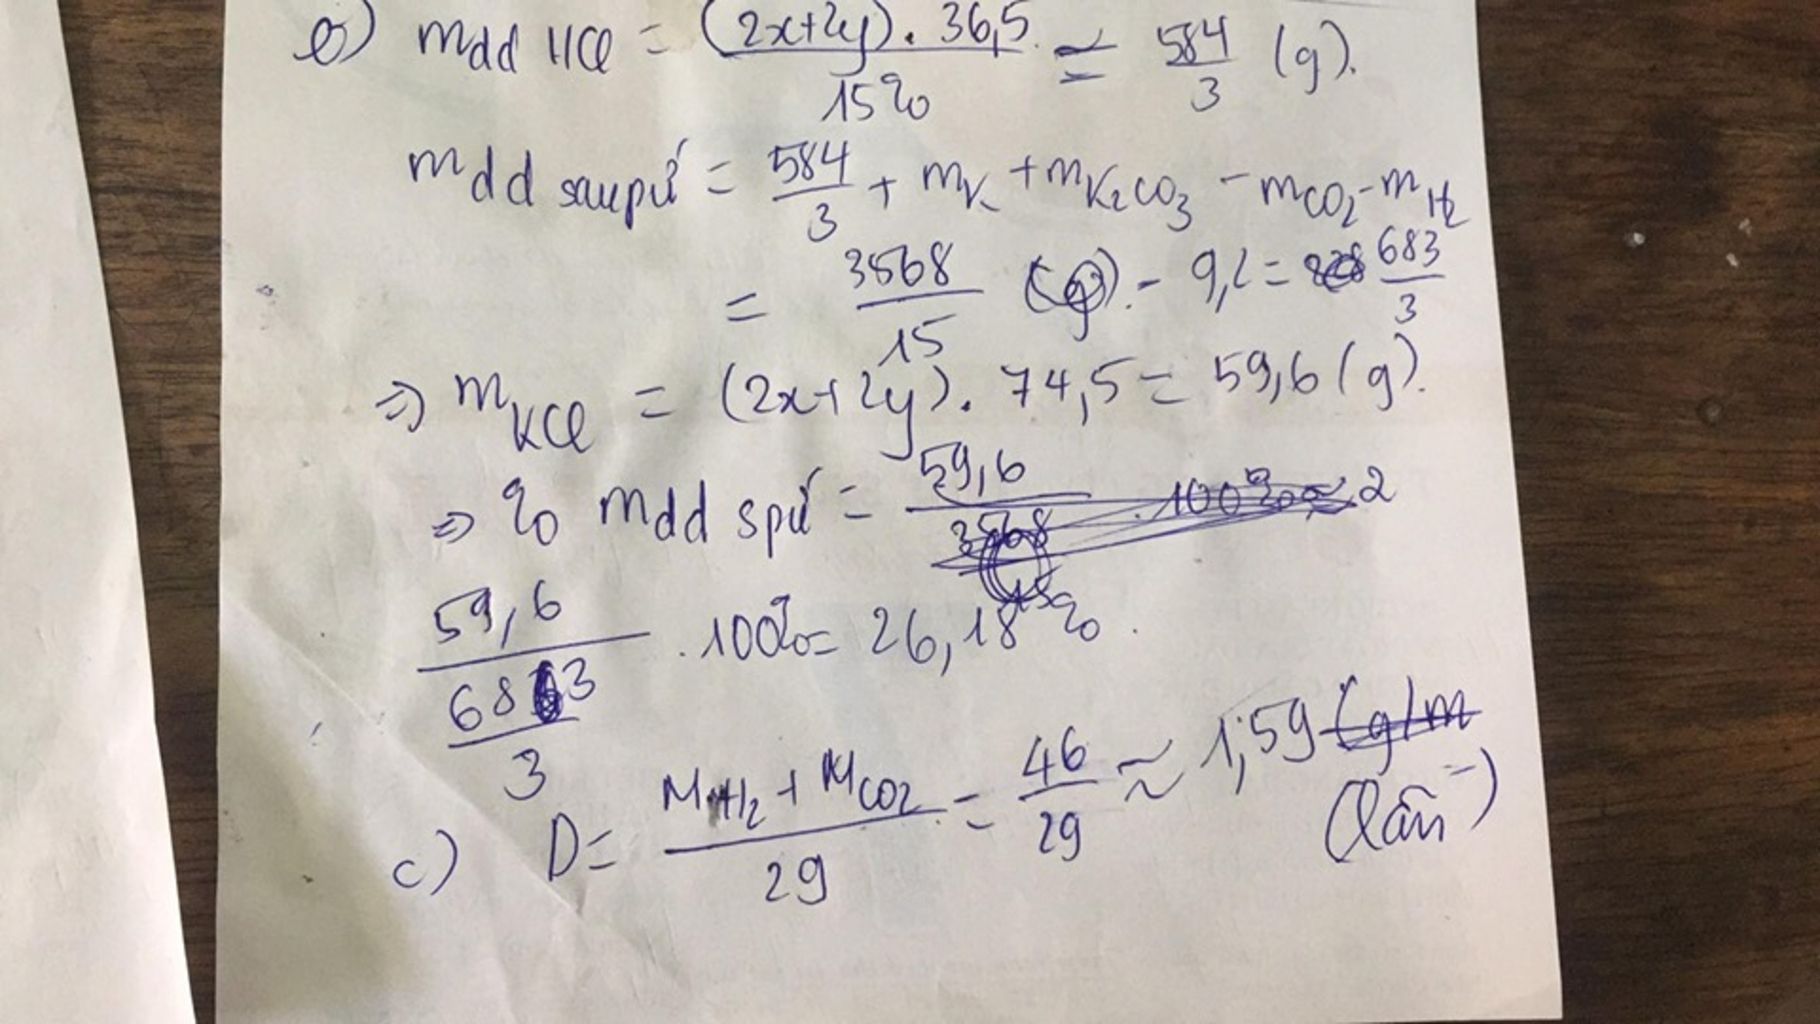 b) mdd HCl = (2x+2y).36,5 / 15% ≃ 584/3 (g).
mdd saupứ = 584/3 + mK + mK2CO3 - mCO2 - mH2
= 3568/15 (g). - 9,2 = 683/3
⇒ mKCl = (2x+2y). 74,5 = 59,6 (g).
⇒ % mdd spứ = 59,6 / 3568/15 . 100% ≈ 2
59,6 / 683/3 . 100% = 26,18%.
c) D = MH2 + MCO2 / 29 = 46/29 ≈ 1,59 (g/m
(lần)